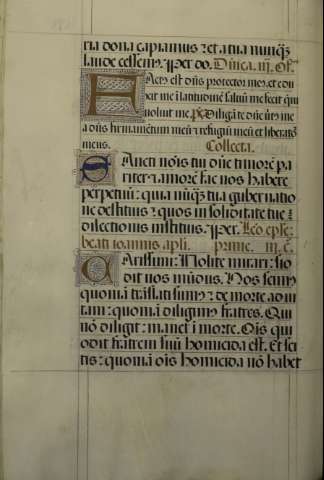 ria dona capiamus ⁊ et a tua nunq̄ꝫ
laude cessem9. per do. Dñica .iii. Off.
Factus est dñs protector me9 et edu
xit me i latitudinē saluū me fecit qm̄
voluit me. ps̄. Diligā te dñe uirt9 me
a dñs firmamentum meū ⁊ refugiū meū et liberator
meus. Collecta.
Sancti nois tui dñe timorē pa
riter ⁊ amorē fac nos habere
perpetuū: quia nūq̄ꝫ tua gubernatio
ne destituis ⁊ quos in soliditate tue
dilectionis instituis. per. Lc̄o ep̄le
beati ioannis ap̄li. prime .iii. c̄.
Carissimi: Nolite mirari: si o
dit uos mūdus. Nos scim9
quoniā trāslati sum9 ⁊ de morte ad ui
tam: quoniā diligim9 fratres. Qui
nō diligit: manet i morte. Ois qui
odit fratrem suū homicida est. Et sci
tis: quoniā ois homicida nō habet